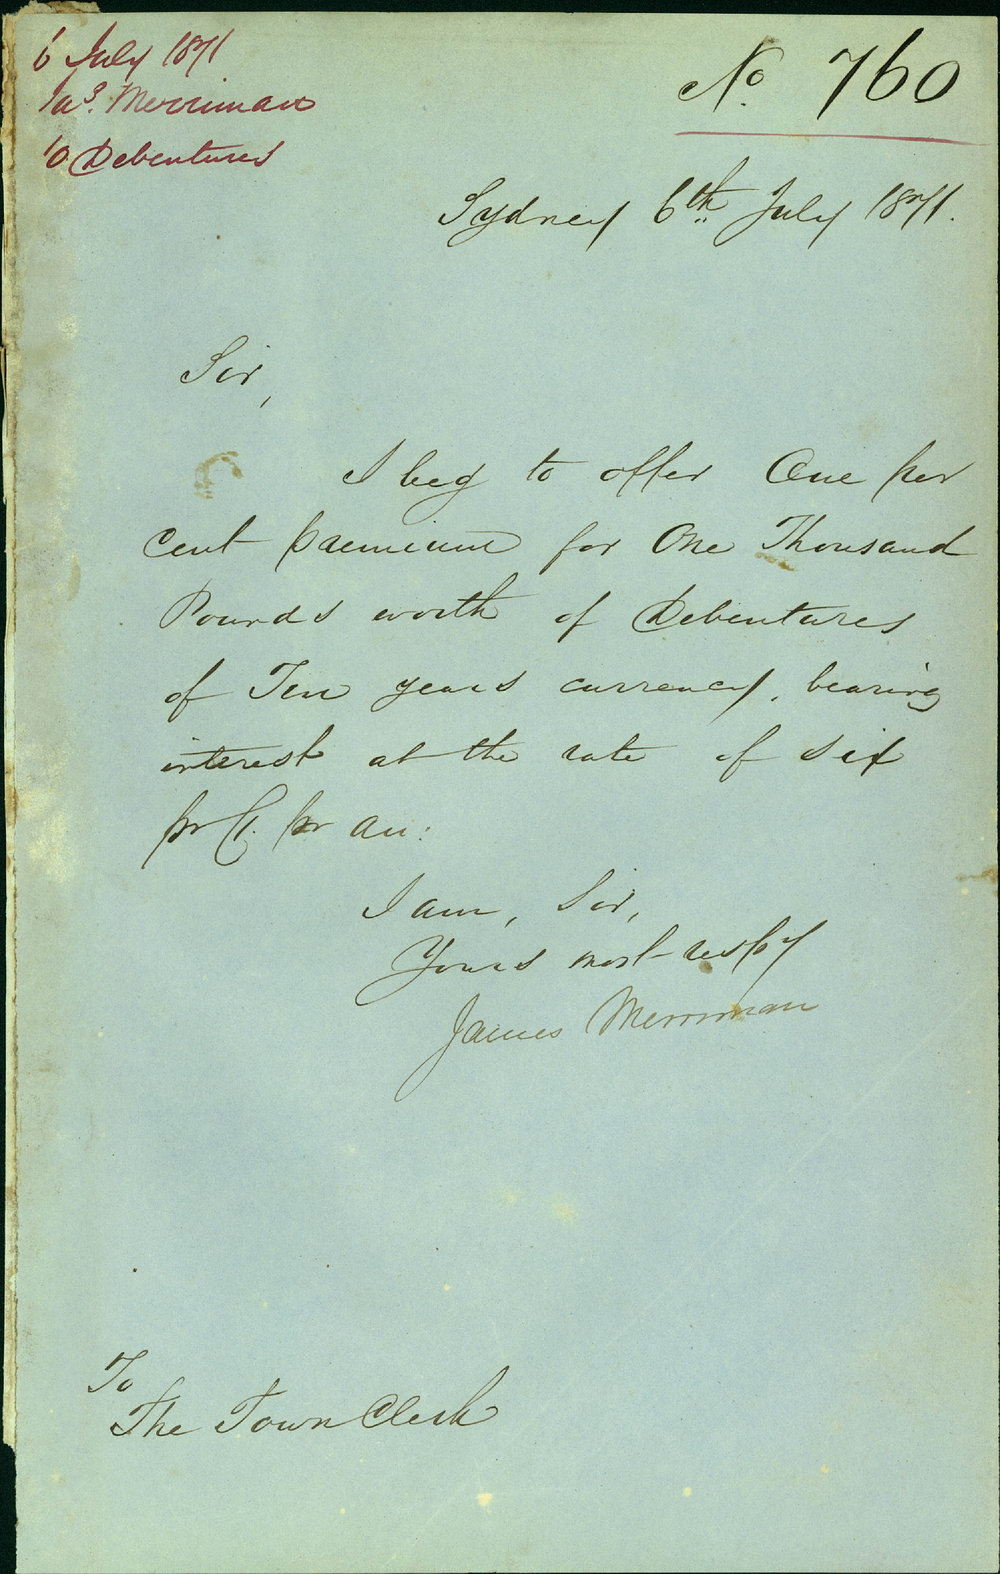 6 July 1871
Jas. Merriman
10 Debentures
No. 760
Sydney 6th July 1871.
Sir,
I beg to offer One per
cent premium for One Thousand
Pounds worth of Debentures
of Ten years currency, bearing
interest at the rate of six
pr Ct. pr an:
I am, Sir,
Yours most respy
James Merriman
To
The Town Clerk